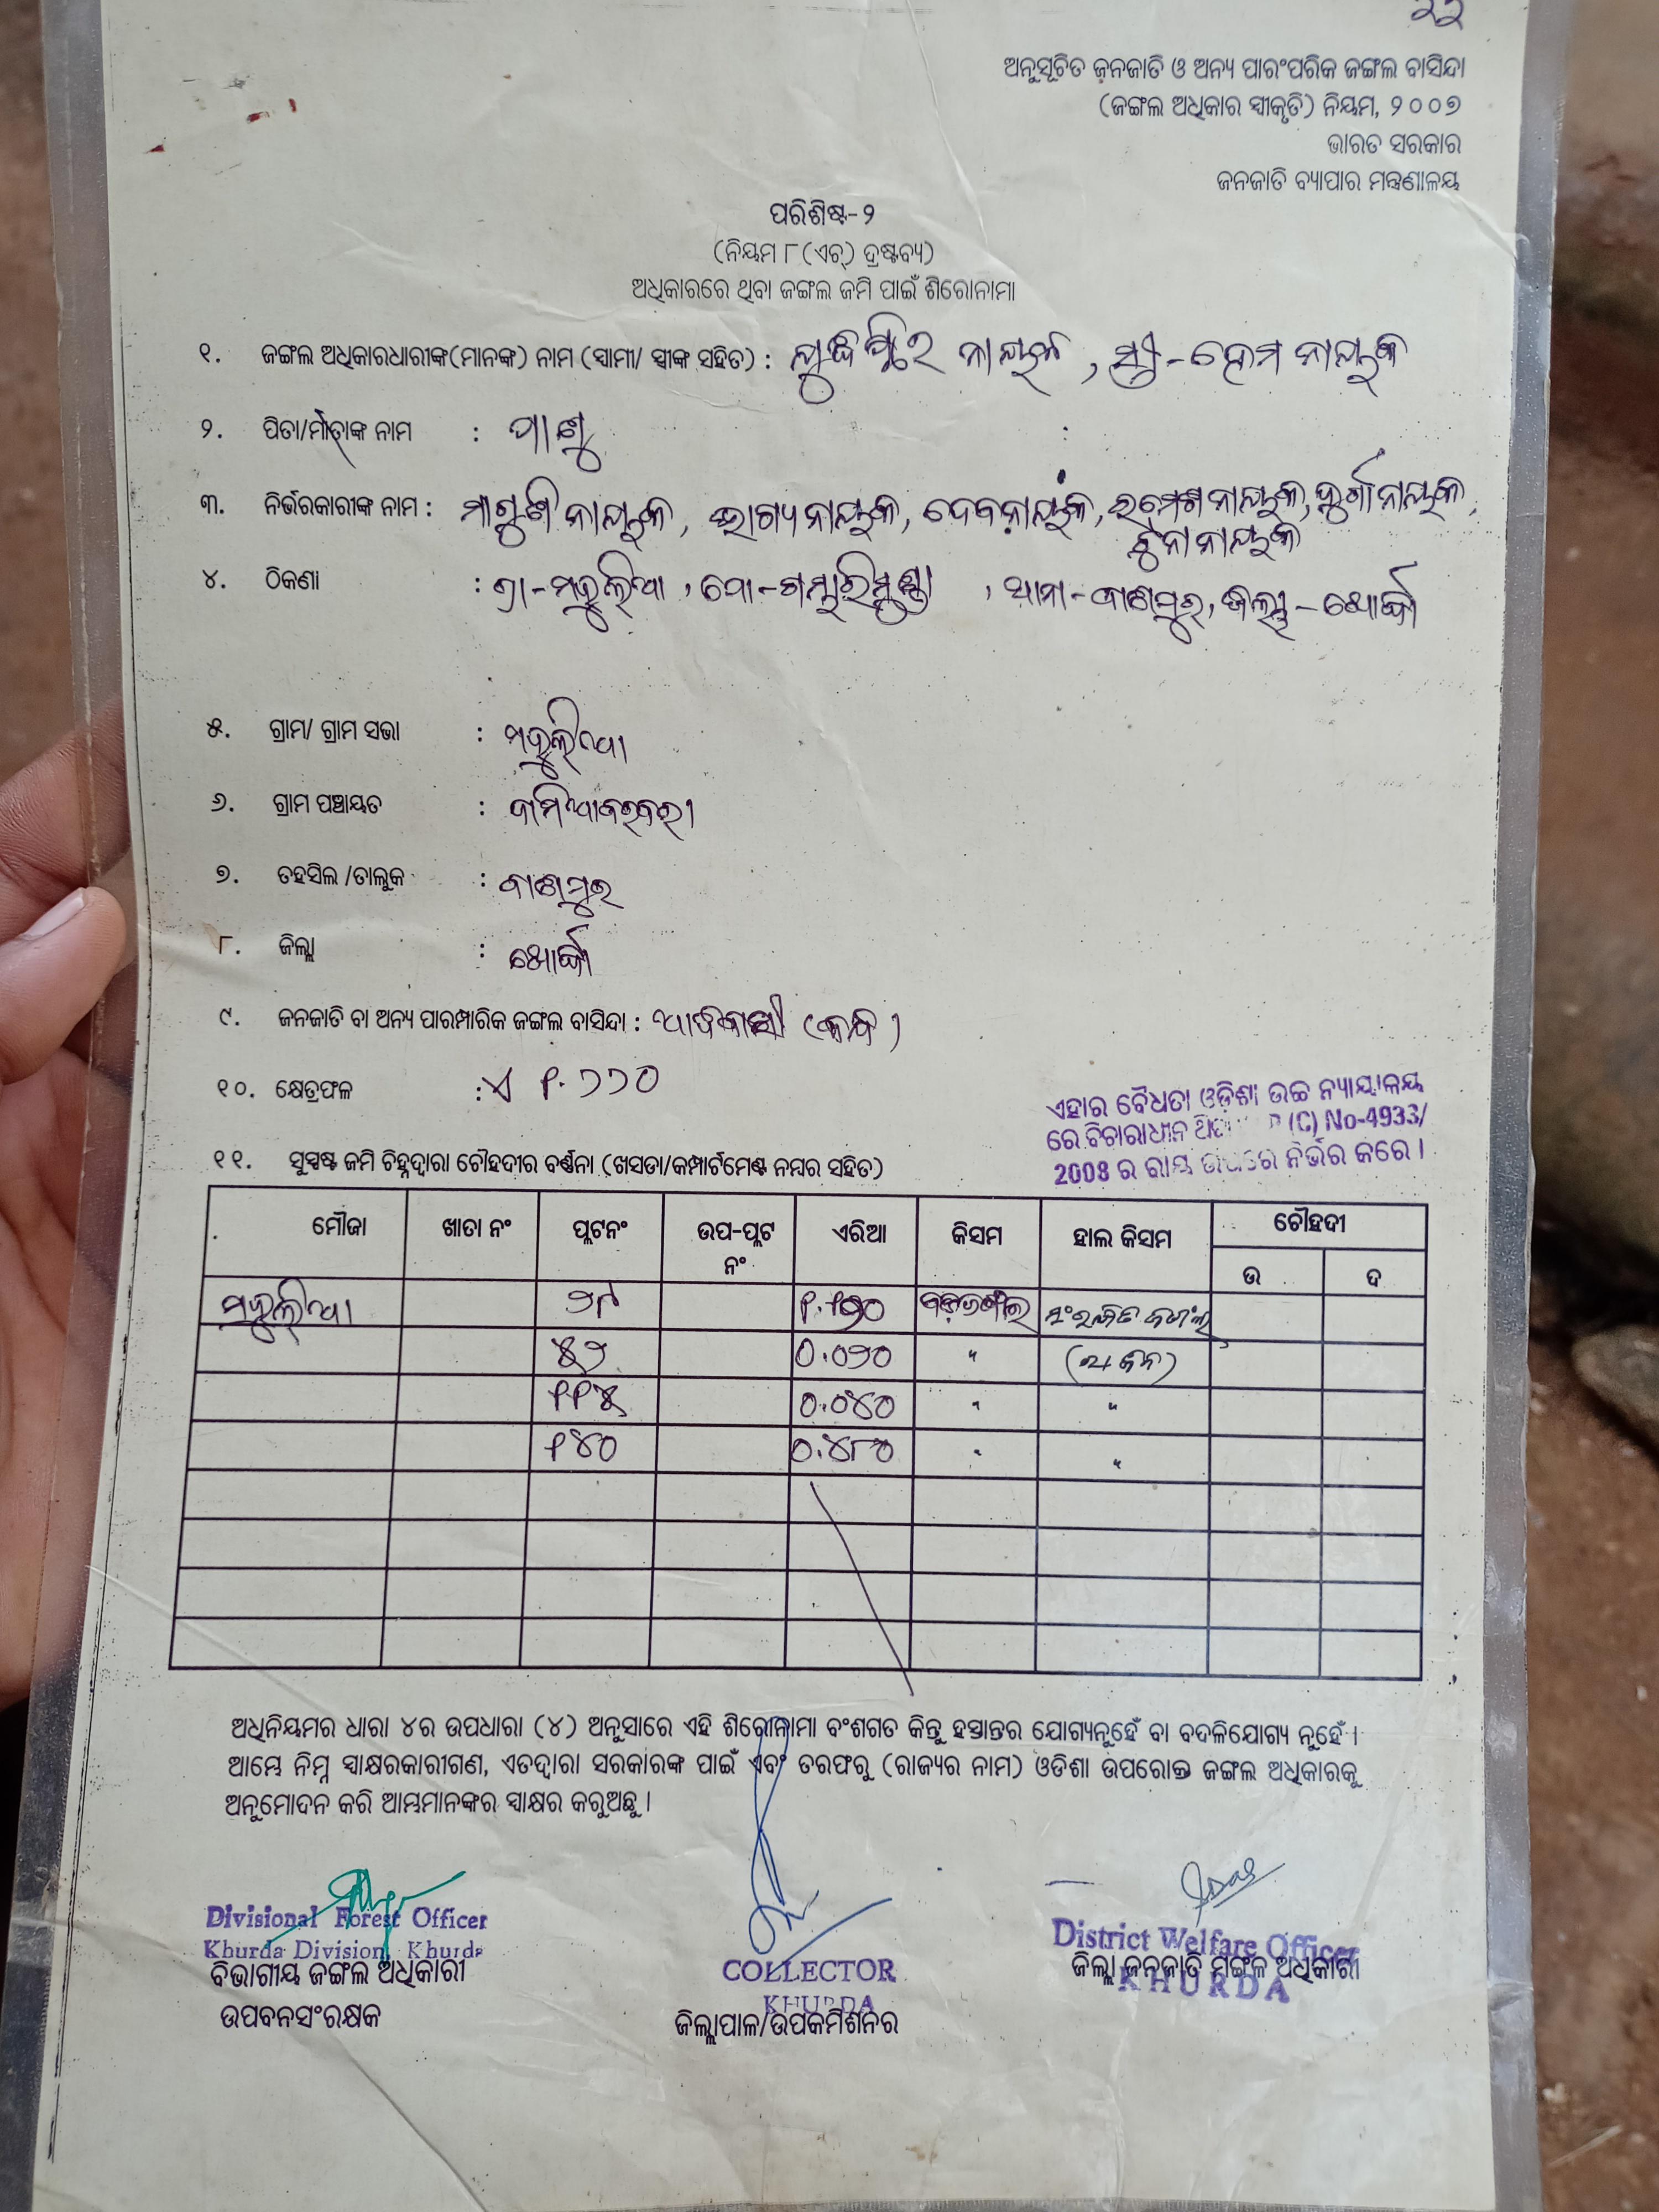 ୨୨
ଅନୁସୂଚିତ ଜନଜାତି ଓ ଅନ୍ୟ ପାରଂପରିକ ଜଙ୍ଗଲ ବାସିନ୍ଦା
(ଜଙ୍ଗଲ ଅଧିକାର ସ୍ୱୀକୃତି) ନିୟମ, ୨୦୦୭
ଭାରତ ସରକାର
ଜନଜାତି ବ୍ୟାପାର ମନ୍ତ୍ରଣାଳୟ
ପରିଶିଷ୍ଟ-୨
(ନିୟମ ୮(ଏଚ୍) ଦ୍ରଷ୍ଟବ୍ୟ)
ଅଧିକାରରେ ଥିବା ଜଙ୍ଗଲ ଜମି ପାଇଁ ଶିରୋନାମା
୧. ଜଙ୍ଗଲ ଅଧିକାରଧାରୀଙ୍କ(ମାନଙ୍କ) ନାମ (ସ୍ୱାମୀ/ ସ୍ତ୍ରୀଙ୍କ ସହିତ) : ନାୟକ , ସ୍ତ୍ରୀ-ହେମ ନାୟକ
୨. ପିତା/ମାତାଙ୍କ ନାମ : ପାଣୁ
୩. ନିର୍ଭରକାରୀଙ୍କ ନାମ : ନାୟକ, ଭାଗ୍ୟ ନାୟକ, ଦେବ ନାୟକ, ରମେଶ ନାୟକ, ଦୁର୍ଗା ନାୟକ,
ଟୁନା ନାୟକ
୪. ଠିକଣା : ଗ୍ରା-ମହୁଲିଆ, ପୋ-ଗମ୍ଭାରିମୁଣ୍ଡା , ଥାନା-ବାଣପୁର, ଜିଲ୍ଲା-ଖୋର୍ଦ୍ଧା
୫. ଗ୍ରାମ/ ଗ୍ରାମ ସଭା : ମହୁଲିଆ
୬. ଗ୍ରାମ ପଞ୍ଚାୟତ :
୭. ତହସିଲ /ତାଲୁକ : ବାଣପୁର
୮. ଜିଲ୍ଲା : ଖୋର୍ଦ୍ଧା
୯. ଜନଜାତି ବା ଅନ୍ୟ ପାରମ୍ପାରିକ ଜଙ୍ଗଲ ବାସିନ୍ଦା : ଆଦିବାସୀ (କନ୍ଧ)
୧୦. କ୍ଷେତ୍ରଫଳ : ଏ ୧.୭୭୦
ଏହାର ବୈଧତା ଓଡ଼ିଶା ଉଚ୍ଚ ନ୍ୟାୟାଳୟ
ରେ ବିଚାରାଧୀନ (C) No-4933/
2008 ର ରାୟ ଉପରେ ନିର୍ଭର କରେ ।
୧୧. ସୁସ୍ପଷ୍ଟ ଜମି ଚିହ୍ନଦ୍ୱାରା ଚୌହଦୀର ବର୍ଣ୍ଣନା (ଖସଡା/କମ୍ପାର୍ଟମେଣ୍ଟ ନମ୍ବର ସହିତ)
ମୌଜା ଖାତା ନଂ ପ୍ଲଟନଂ ଉପ-ପ୍ଲଟ ନଂ ଏରିଆ କିସମ ହାଲ କିସମ ଚୌହଦୀ
ଉ ଦ
ମହୁଲିଆ ସଂରକ୍ଷିତ ଜଙ୍ଗଲ
୫୨ ୦.୦୨୦ "
୧୧୫ ୦.୦୪୦ " "
୧୪୦ " "
ଅଧିନିୟମର ଧାରା ୪ର ଉପଧାରା (୪) ଅନୁସାରେ ଏହି ଶିରୋନାମା ବଂଶଗତ କିନ୍ତୁ ହସ୍ତାନ୍ତର ଯୋଗ୍ୟନୁହେଁ ବା ବଦଳିଯୋଗ୍ୟ ନୁହେଁ ।
ଆମ୍ଭେ ନିମ୍ନ ସ୍ୱାକ୍ଷରକାରୀଗଣ, ଏତଦ୍ୱାରା ସରକାରଙ୍କ ପାଇଁ ଏବଂ ତରଫରୁ (ରାଜ୍ୟର ନାମ) ଓଡିଶା ଉପରୋକ୍ତ ଜଙ୍ଗଲ ଅଧିକାରକୁ
ଅନୁମୋଦନ କରି ଆମ୍ଭମାନଙ୍କର ସ୍ୱାକ୍ଷର କରୁଅଛୁ ।
Divisional Forest Officer
Khurda Division, Khurda
ବିଭାଗୀୟ ଜଙ୍ଗଲ ଅଧିକାରୀ
ଉପବନସଂରକ୍ଷକ
COLLECTOR
KHURDA
ଜିଲ୍ଲାପାଳ/ଉପକମିଶନର
District Welfare Officer
KHURDA
ଜିଲ୍ଲା ଜନଜାତି ମଙ୍ଗଳ ଅଧିକାରୀ